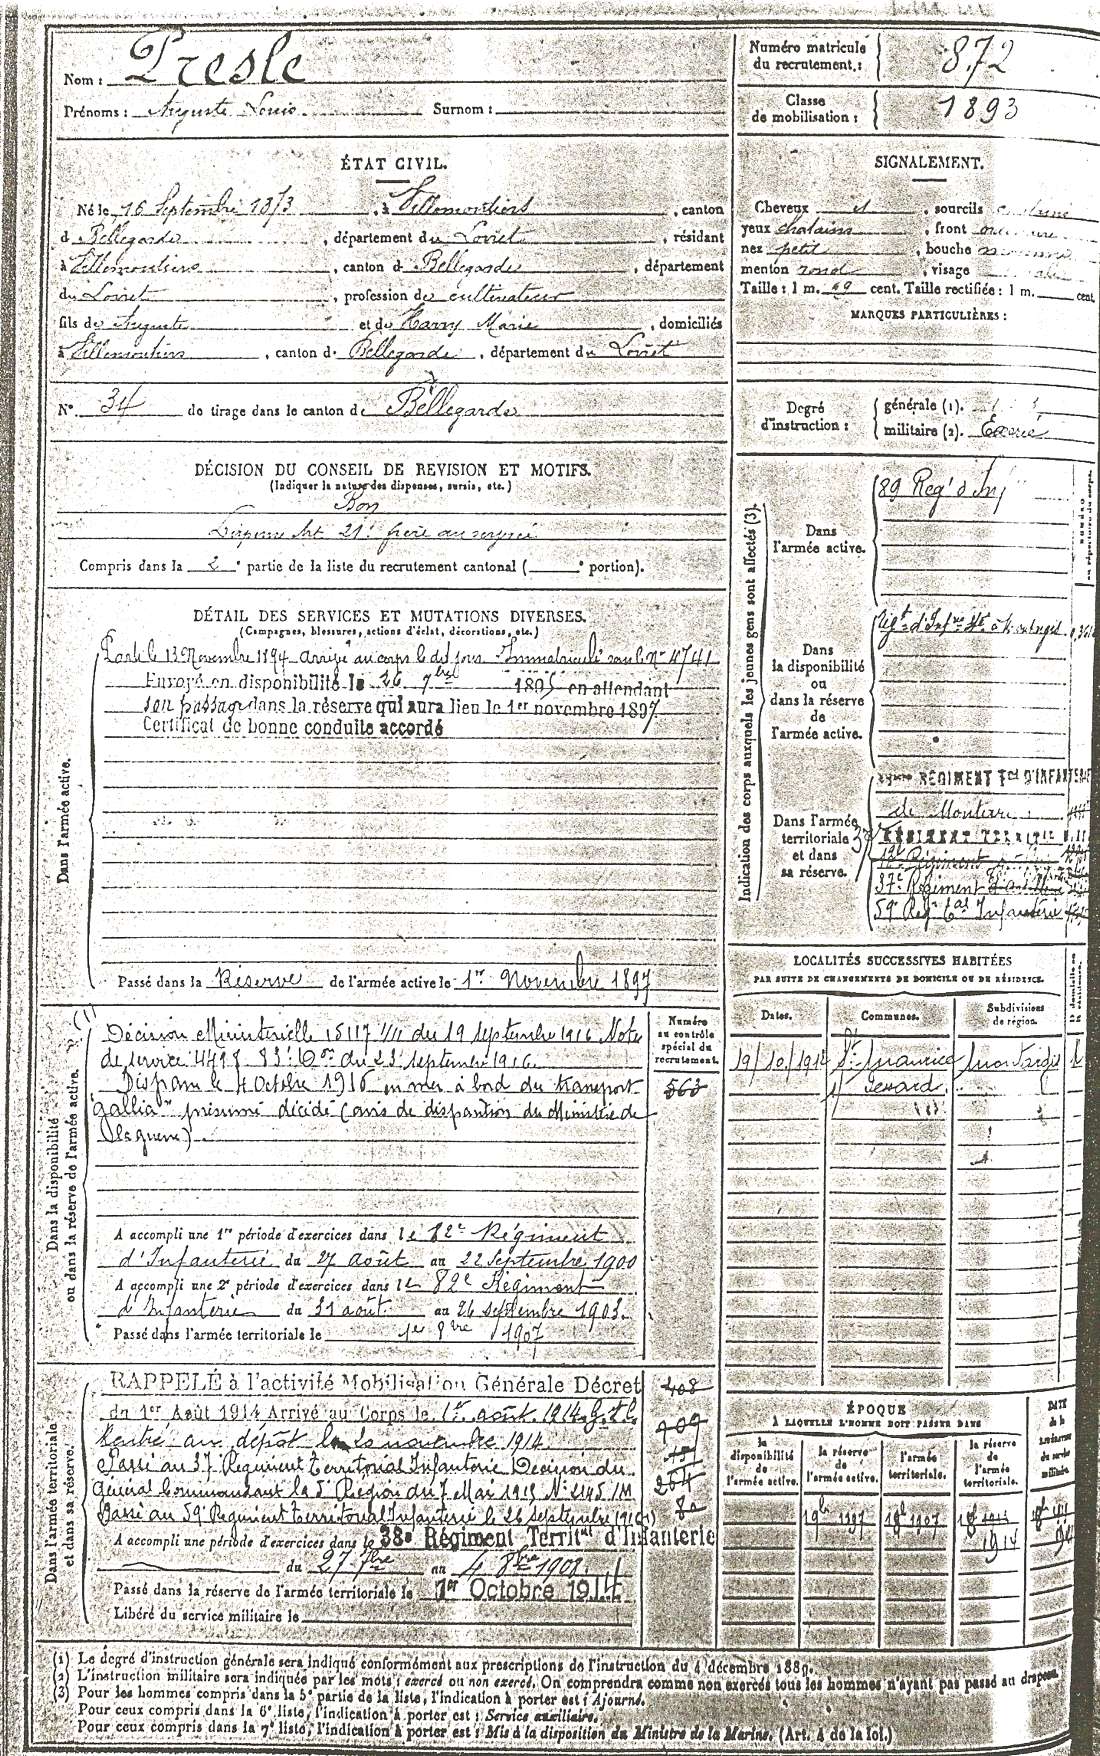 Nom : Presle
Prénoms : Auguste Louis Surnom :
Numéro matricule du recrutement : 872
Classe de mobilisation : 1893
ÉTAT CIVIL.
Né le 16 Septembre 1873, à Villemoutiers, canton
d Bellegarde, département du Loiret, résidant
à Villemoutiers, canton d Bellegarde, département
du Loiret, profession de cultivateur
fils de Auguste et de Harry Marie, domiciliés
à Villemoutiers, canton d. Bellegarde, département du Loiret
N° 34 de tirage dans le canton de Bellegarde
SIGNALEMENT.
Cheveux et, sourcils
yeux chatains, front
nez petit, bouche
menton rond, visage
Taille : 1 m. 69 cent. Taille rectifiée : 1 m. cent.
MARQUES PARTICULIÈRES :
Degré d'instruction :
générale (1). 3
militaire (2). Exercé
DÉCISION DU CONSEIL DE REVISION ET MOTIFS.
(Indiquer la nature des dispenses, sursis, etc.)
Bon
Dispensé Art 21. frère au service
Compris dans la 2e partie de la liste du recrutement cantonal ( e portion).
DÉTAIL DES SERVICES ET MUTATIONS DIVERSES.
(Campagnes, blessures, actions d'éclat, décorations, etc.)
Dans l'armée active.
Parti le 13 Novembre 1894 arrivé au corps le dit jour Immatriculé sous le No 4741
Envoyé en disponibilité le 26 7bre 1895 en attendant
son passage dans la réserve qui aura lieu le 1er novembre 1897
Certificat de bonne conduite accordé
Passé dans la Réserve de l'armée active le 1er Novembre 1897
Indication des corps auxquels les jeunes gens sont affectés (3).
Dans l'armée active.
89 Regt d Inf
Dans la disponibilité ou dans la réserve de l'armée active.
Régt d'Infrie
Dans l'armée territoriale et dans sa réserve.
RÉGIMENT Tal D'INFANTERIE
de Montarg
37e RÉGIMENT TERRITal
Régiment
37e Régiment
59e Regt tal Infanterie
LOCALITÉS SUCCESSIVES HABITÉES
PAR SUITE DE CHANGEMENTS DE DOMICILE OU DE RÉSIDENCE.
Dates. Communes. Subdivisions de région.
19/10/1912 St Maurice s/ Fessard Montargis
Dans la disponibilité ou dans la réserve de l'armée active.
(1)
Numéro au contrôle spécial du recrutement.
563
Décision Ministérielle 15117 1/11 du 19 septembre 1916 Note
de service 4498 du 23 septembre 1916.
Disparu le 4 Octobre 1916 en mer à bord du transport
"Gallia" présumé décédé (avis de disparition du Ministre de
la guerre).
A accompli une 1re période d'exercices dans le 82e Régiment
d'Infanterie du 27 août au 22 septembre 1900
A accompli une 2e période d'exercices dans le 82e Régiment
d'Infanterie du 31 août au 26 septembre 1903.
Passé dans l'armée territoriale le 1er 8bre 1907
Dans l'armée territoriale et dans sa réserve.
RAPPELÉ à l'activité Mobilisation Générale Décret
du 1er Août 1914 Arrivé au Corps le 1er août 1914
Rentré au dépôt le 20 novembre 1914
Passé au 37 Régiment Territorial Infanterie Décision du
Général Commandant la 5e Région du 7 Mai 1915 No 2145/M
Passé au 59e Régiment Territorial Infanterie le 26 septembre 1916 (1)
A accompli une période d'exercices dans le 38e Régiment Territal d'Infanterie
du 27 7bre au 4 8bre 1908.
Passé dans la réserve de l'armée territoriale le 1er Octobre 1914
Libéré du service militaire le
408
409
264
80
ÉPOQUE
A LAQUELLE L'HOMME DOIT PASSER DANS
la disponibilité de l'armée active. la réserve de l'armée active. l'armée territoriale. la réserve de l'armée territoriale. DATE de la libération du service militaire.
1 9bre 1897 1 8bre 1907 1 8bre 1913
1914
(1) Le degré d'instruction générale sera indiqué conformément aux prescriptions de l'instruction du 4 décembre 1889.
(2) L'instruction militaire sera indiquée par les mots : exercé ou non exercé. On comprendra comme non exercés tous les hommes n'ayant pas passé au drapeau.
(3) Pour les hommes compris dans la 5e partie de la liste, l'indication à porter est : Ajourné.
Pour ceux compris dans la 6e liste, l'indication à porter est : Service auxiliaire.
Pour ceux compris dans la 7e liste, l'indication à porter est : Mis à la disposition du Ministre de la Marine. (Art. 4 de la loi.)